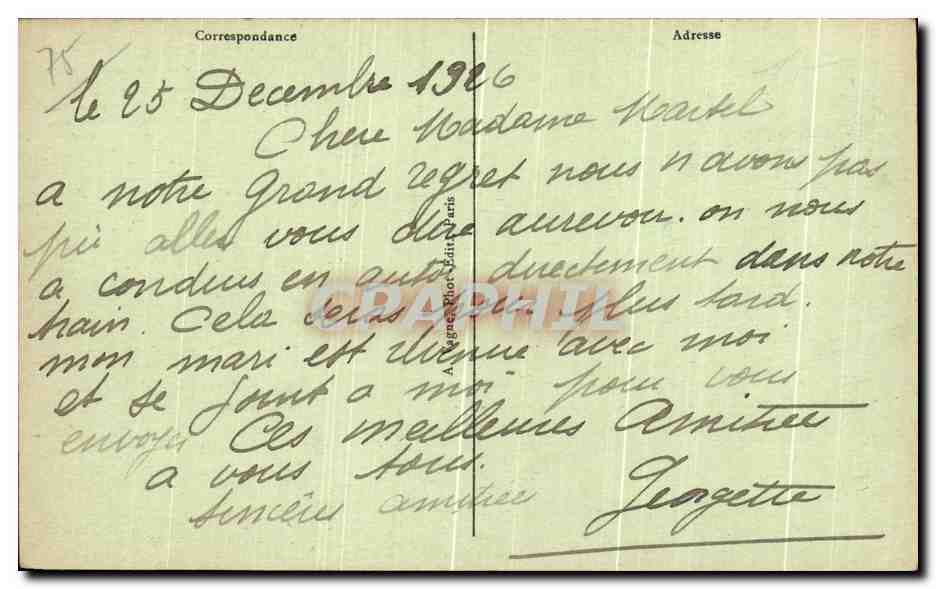 Correspondance
Adresse
75
le 25 Decembre 1926
Chere Madame Martel
a notre grand regret nous n avons pas
pu aller vous dire aurevoir. on nous
a conduis en auto directement dans notre
train. Cela seras pour plus tard.
mon mari est revenue avec moi
et se joint a moi pour vous
envoyer Ces meilleures Amitiées
a vous tous.
sincères amitiée
Georgette
A. Phot.-Edit. Paris
CPAPHIL